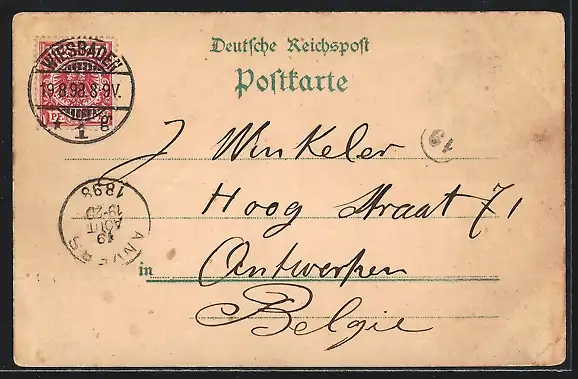 Deutsche Reichspost
Postkarte
WIESBADEN
19.8.98.8-9V.
1 g
J Winkeler
19
Hoog Straat 71
in Antwerpen
Belgie
ANVERS
19
AOUT
19-20
1898